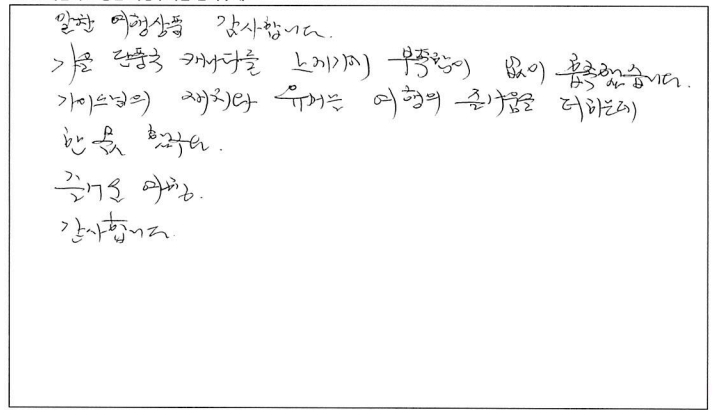 알찬 여행상품 감사합니다.
가을 단풍국 캐나다를 느끼기에 부족함이 없이 흡족했습니다.
가이드님의 재치와 유머는 여행의 즐거움을 더하는데
한 몫 했구요.
즐거운 여행.
감사합니다.